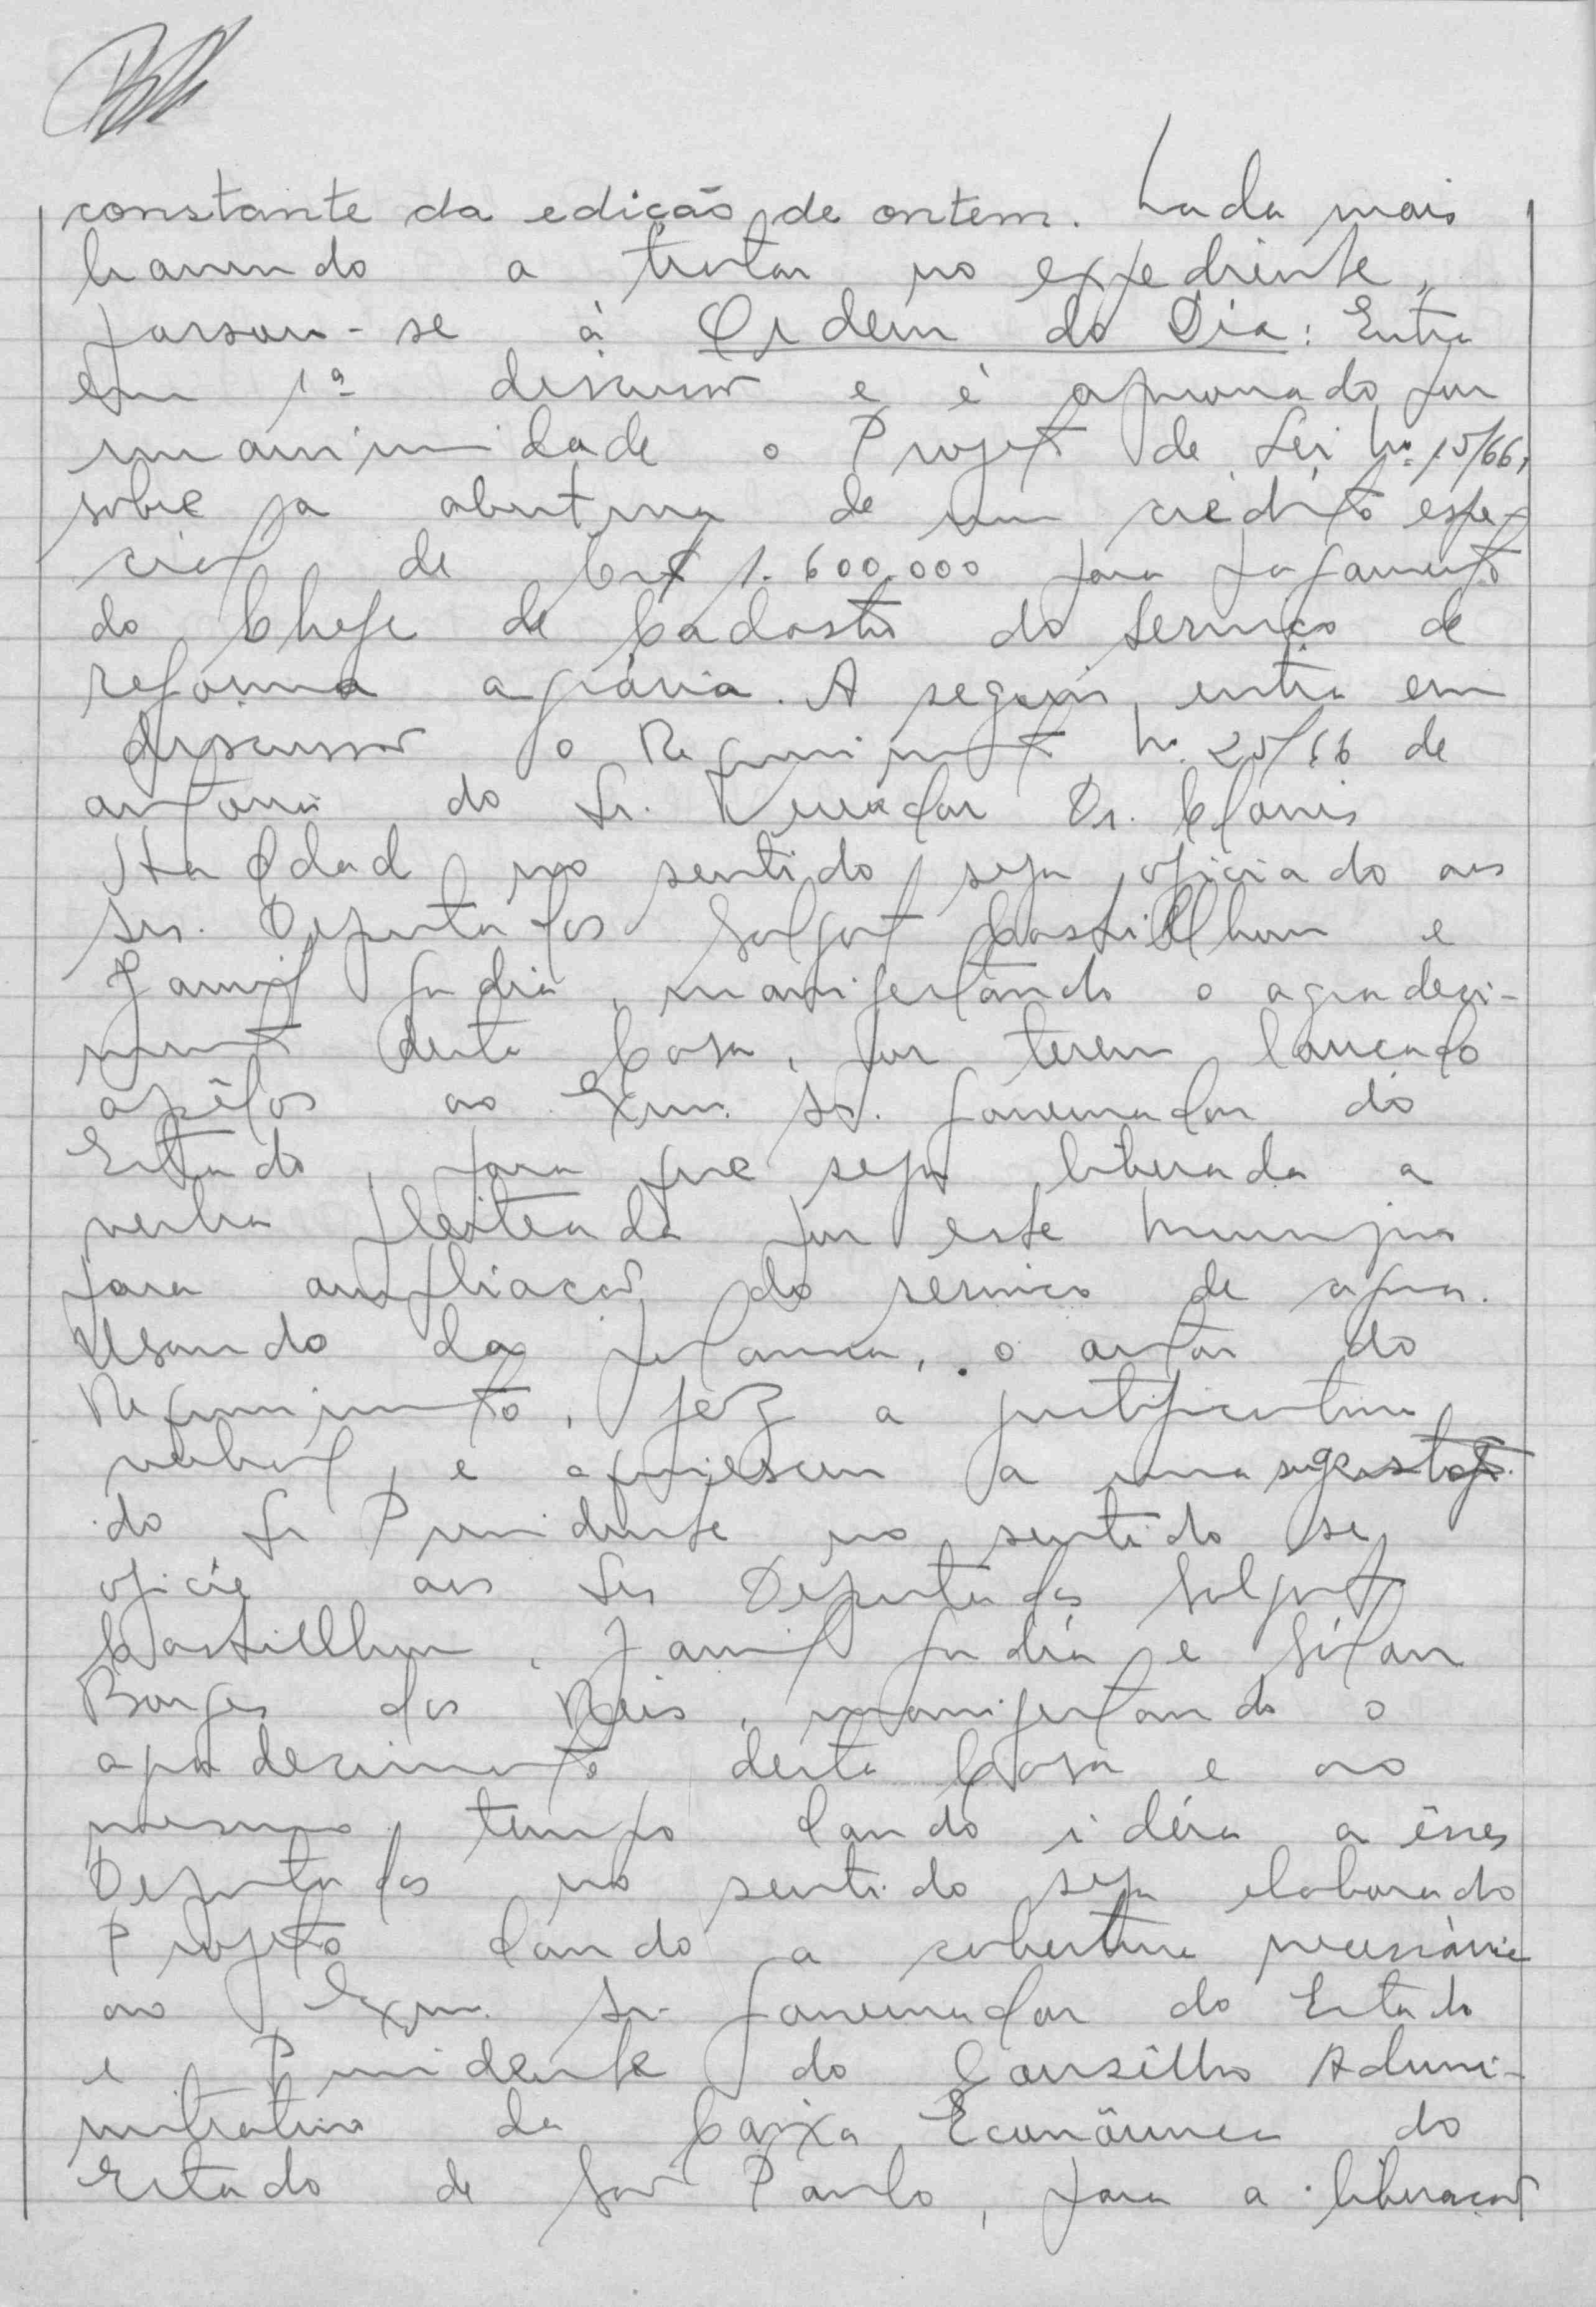 constante da edição de ontem. Nada mais
havendo a tratar no expediente,
passou-se à Ordem do Dia: Entra
em 1ª discussão e é aprovado por
unanimidade o Projeto de Lei nº 15/66,
sobre a abertura de um crédito espe-
cial de Cr$ 1.600.000 para pagamento
do Chefe de Cadastro do serviço de
reforma agrária. A seguir, entra em
discussão o Requerimento nº 25/66 de
autoria do Sr. Vereador Dr. Clovis
Haddad no sentido seja oficiado aos
srs. Deputados Salgot Castillhon e
Jamil Gadia, manifestando o agradeci-
mento desta Casa, por terem lançado
apêlos ao Exmo. Sr. Governador do
Estado, para que seja liberada a
verba pleiteada por este Município
para ampliação do serviço de agua.
Usando da palavra, o autor do
Requerimento, fez a justificativa
verbal, e aquiesceu a uma sugestão
do Sr Presidente no sentido se
oficie aos Srs Deputados Salgot
Castillhon, Jamil Gadia e
Borges dos Reis, manifestando o
agradecimento desta Casa e ao
mesmo tempo dando idéia a êsses
Deputados no sentido seja elaborado
Projeto dando a cobertura necessária
ao Exmo. Sr. Governador do Estado
e Presidente do Conselho Admi-
nistrativo da Caixa Econômica do
Estado de São Paulo, para a liberação